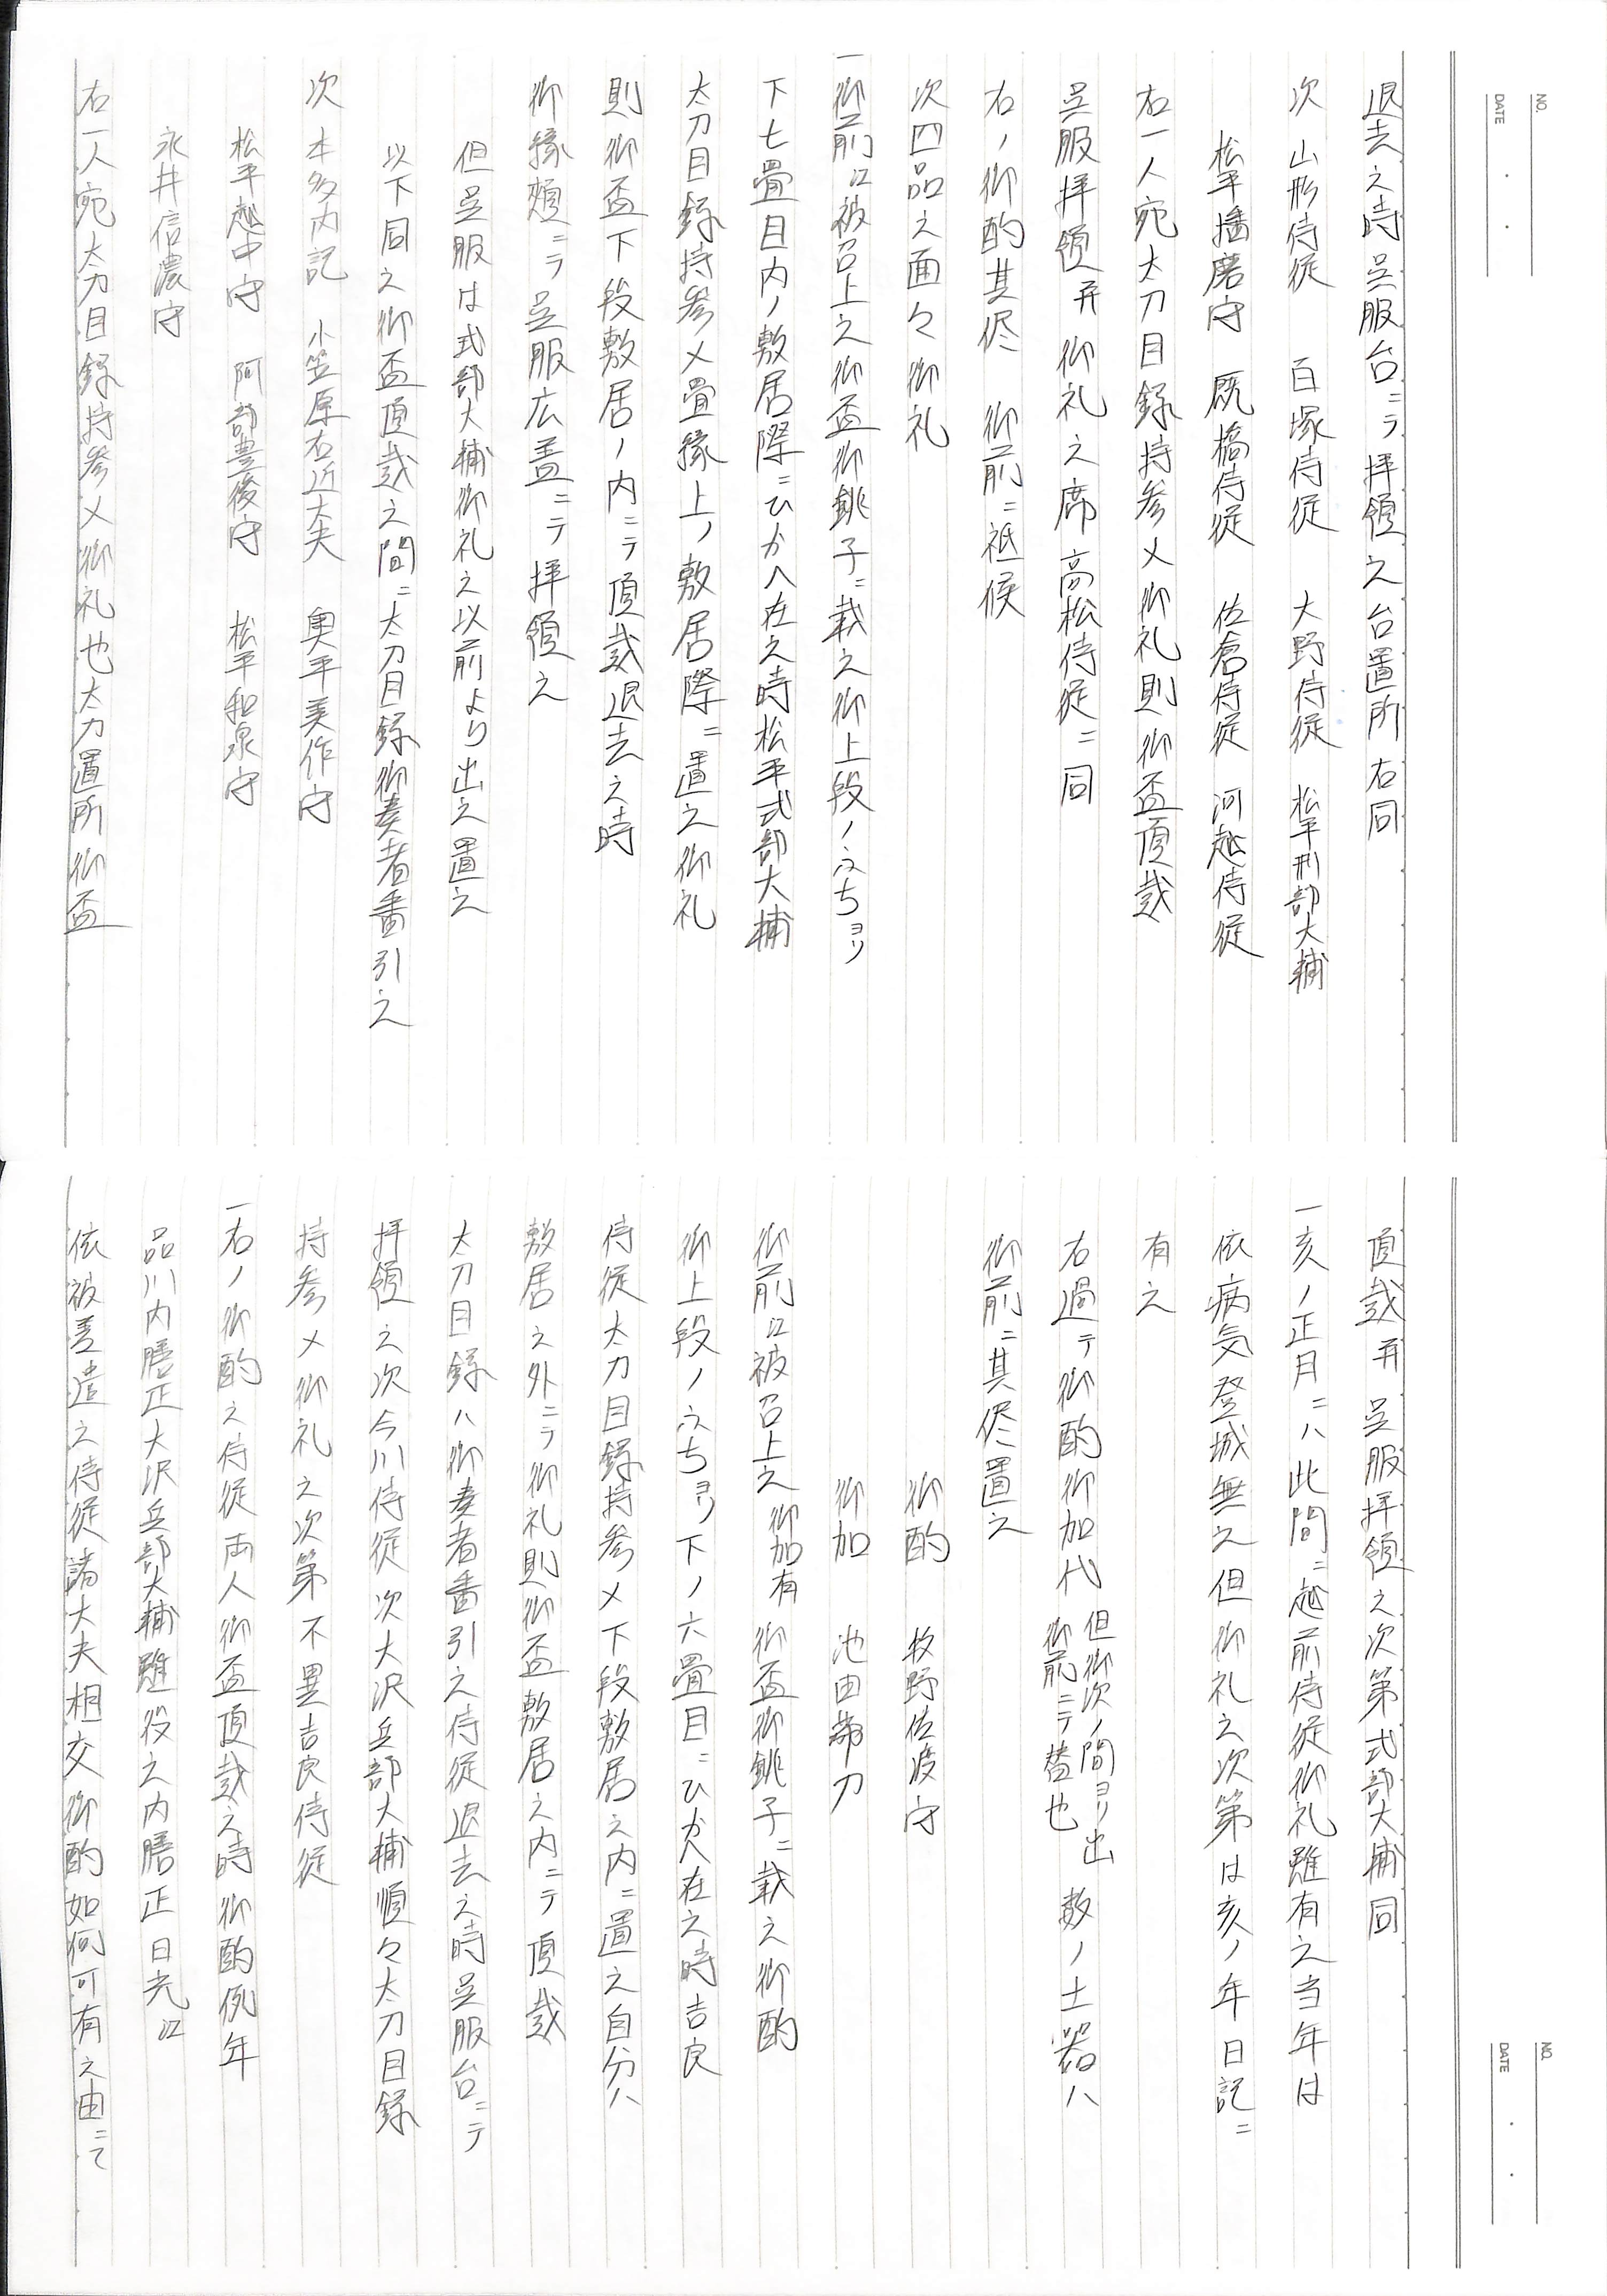 NO.
DATE
退去之時呉服台ニテ拝領之台置所右同
次 山形侍従 百塚侍従 大野侍従 松平刑部大輔
松平播磨守 厩橋侍従 佐倉侍従 河越侍従
右一人宛太刀目録持参メ御礼則御盃頂戴
呉服拝領并御礼之席高松侍従ニ同
右ノ御酌其侭 御前ニ祗候
次四品之面々御礼
一御前江被召上之御盃御銚子ニ載之御上段ノふちヨリ
下七畳目内ノ敷居際ニひかへ在之時松平式部大輔
太刀目録持参メ畳縁上ノ敷居際ニ置之御礼
則御盃下段敷居ノ内ニテ頂戴退去之時
御縁頬ニテ呉服広蓋ニテ拝領之
但呉服は式部大輔御礼之以前より出之置之
以下同之御盃頂戴之間ニ太刀目録御奏者番引之
次 本多内記 小笠原右近大夫 奥平美作守
松平越中守 阿部豊後守 松平和泉守
永井信濃守
右一人宛太刀目録持参メ御礼也太刀置所御盃
NO.
DATE
頂戴并呉服拝領之次第式部大輔同
一亥ノ正月ニハ此間ニ越前侍従御礼雖有之当年は
依病気登城無之但御礼之次第は亥ノ年日記ニ
有之
右過テ御酌御加代 但御次ノ間ヨリ出 御前ニテ替也 数ノ土器ハ
御前ニ其侭置之
御酌 牧野佐渡守
御加 池田帯刀
御前江被召上之御加有御盃御銚子ニ載之御酌
御上段ノふちヨリ下ノ六畳目ニひかへ在之時吉良
侍従太刀目録持参メ下段敷居之内ニ置之自分ハ
敷居之外ニテ御礼則御盃敷居之内ニテ頂戴
太刀目録ハ御奏者番引之侍従退去之時呉服台ニテ
拝領之次今川侍従次大沢兵部大輔順々太刀目録
持参メ御礼之次第不異吉良侍従
一右ノ御酌之侍従両人御盃頂戴之時御酌例年
品川内膳正大沢兵部大輔雖役之内膳正日光江
依被差遣之侍従諸大夫相交御酌如何可有之由ニて